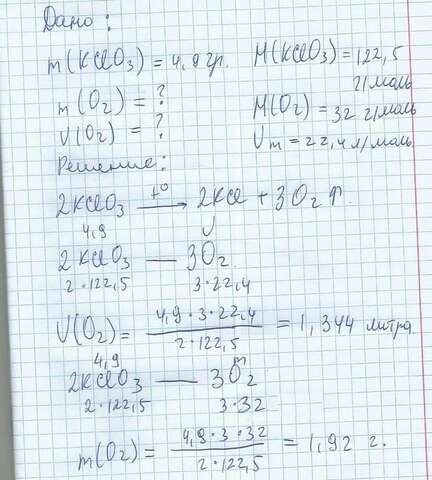 Дано:
m(KClO₃) = 4,9 гр. M(KClO₃) = 122,5 г/моль
m(O₂) = ? M(O₂) = 32 г/моль
V(O₂) = ? Vm = 22,4 л/моль
Решение:
2KClO₃ —t°→ 2KCl + 3O₂↑.
4,9 V
2KClO₃ — 3O₂
2·122,5 3·22,4
V(O₂) = 4,9·3·22,4 / 2·122,5 = 1,344 литра
4,9 m
2KClO₃ — 3O₂
2·122,5 3·32
m(O₂) = 4,9·3·32 / 2·122,5 = 1,92 г.